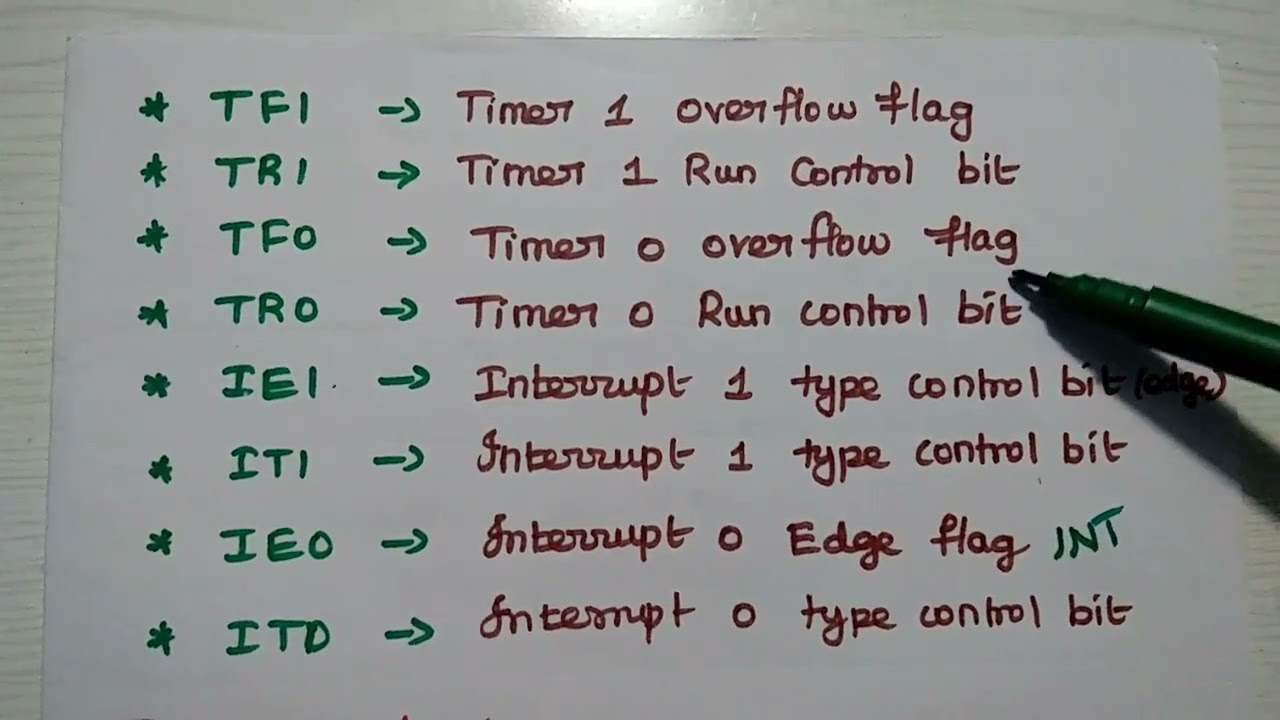 * TF1 → Timer 1 overflow flag
* TR1 → Timer 1 Run Control bit
* TF0 → Timer 0 overflow flag
* TR0 → Timer 0 Run control bit
* IE1 → Interrupt 1 type control bit (edge)
* IT1 → Interrupt 1 type control bit
* IE0 → Interrupt 0 Edge flag INT
* IT0 → Interrupt 0 type control bit